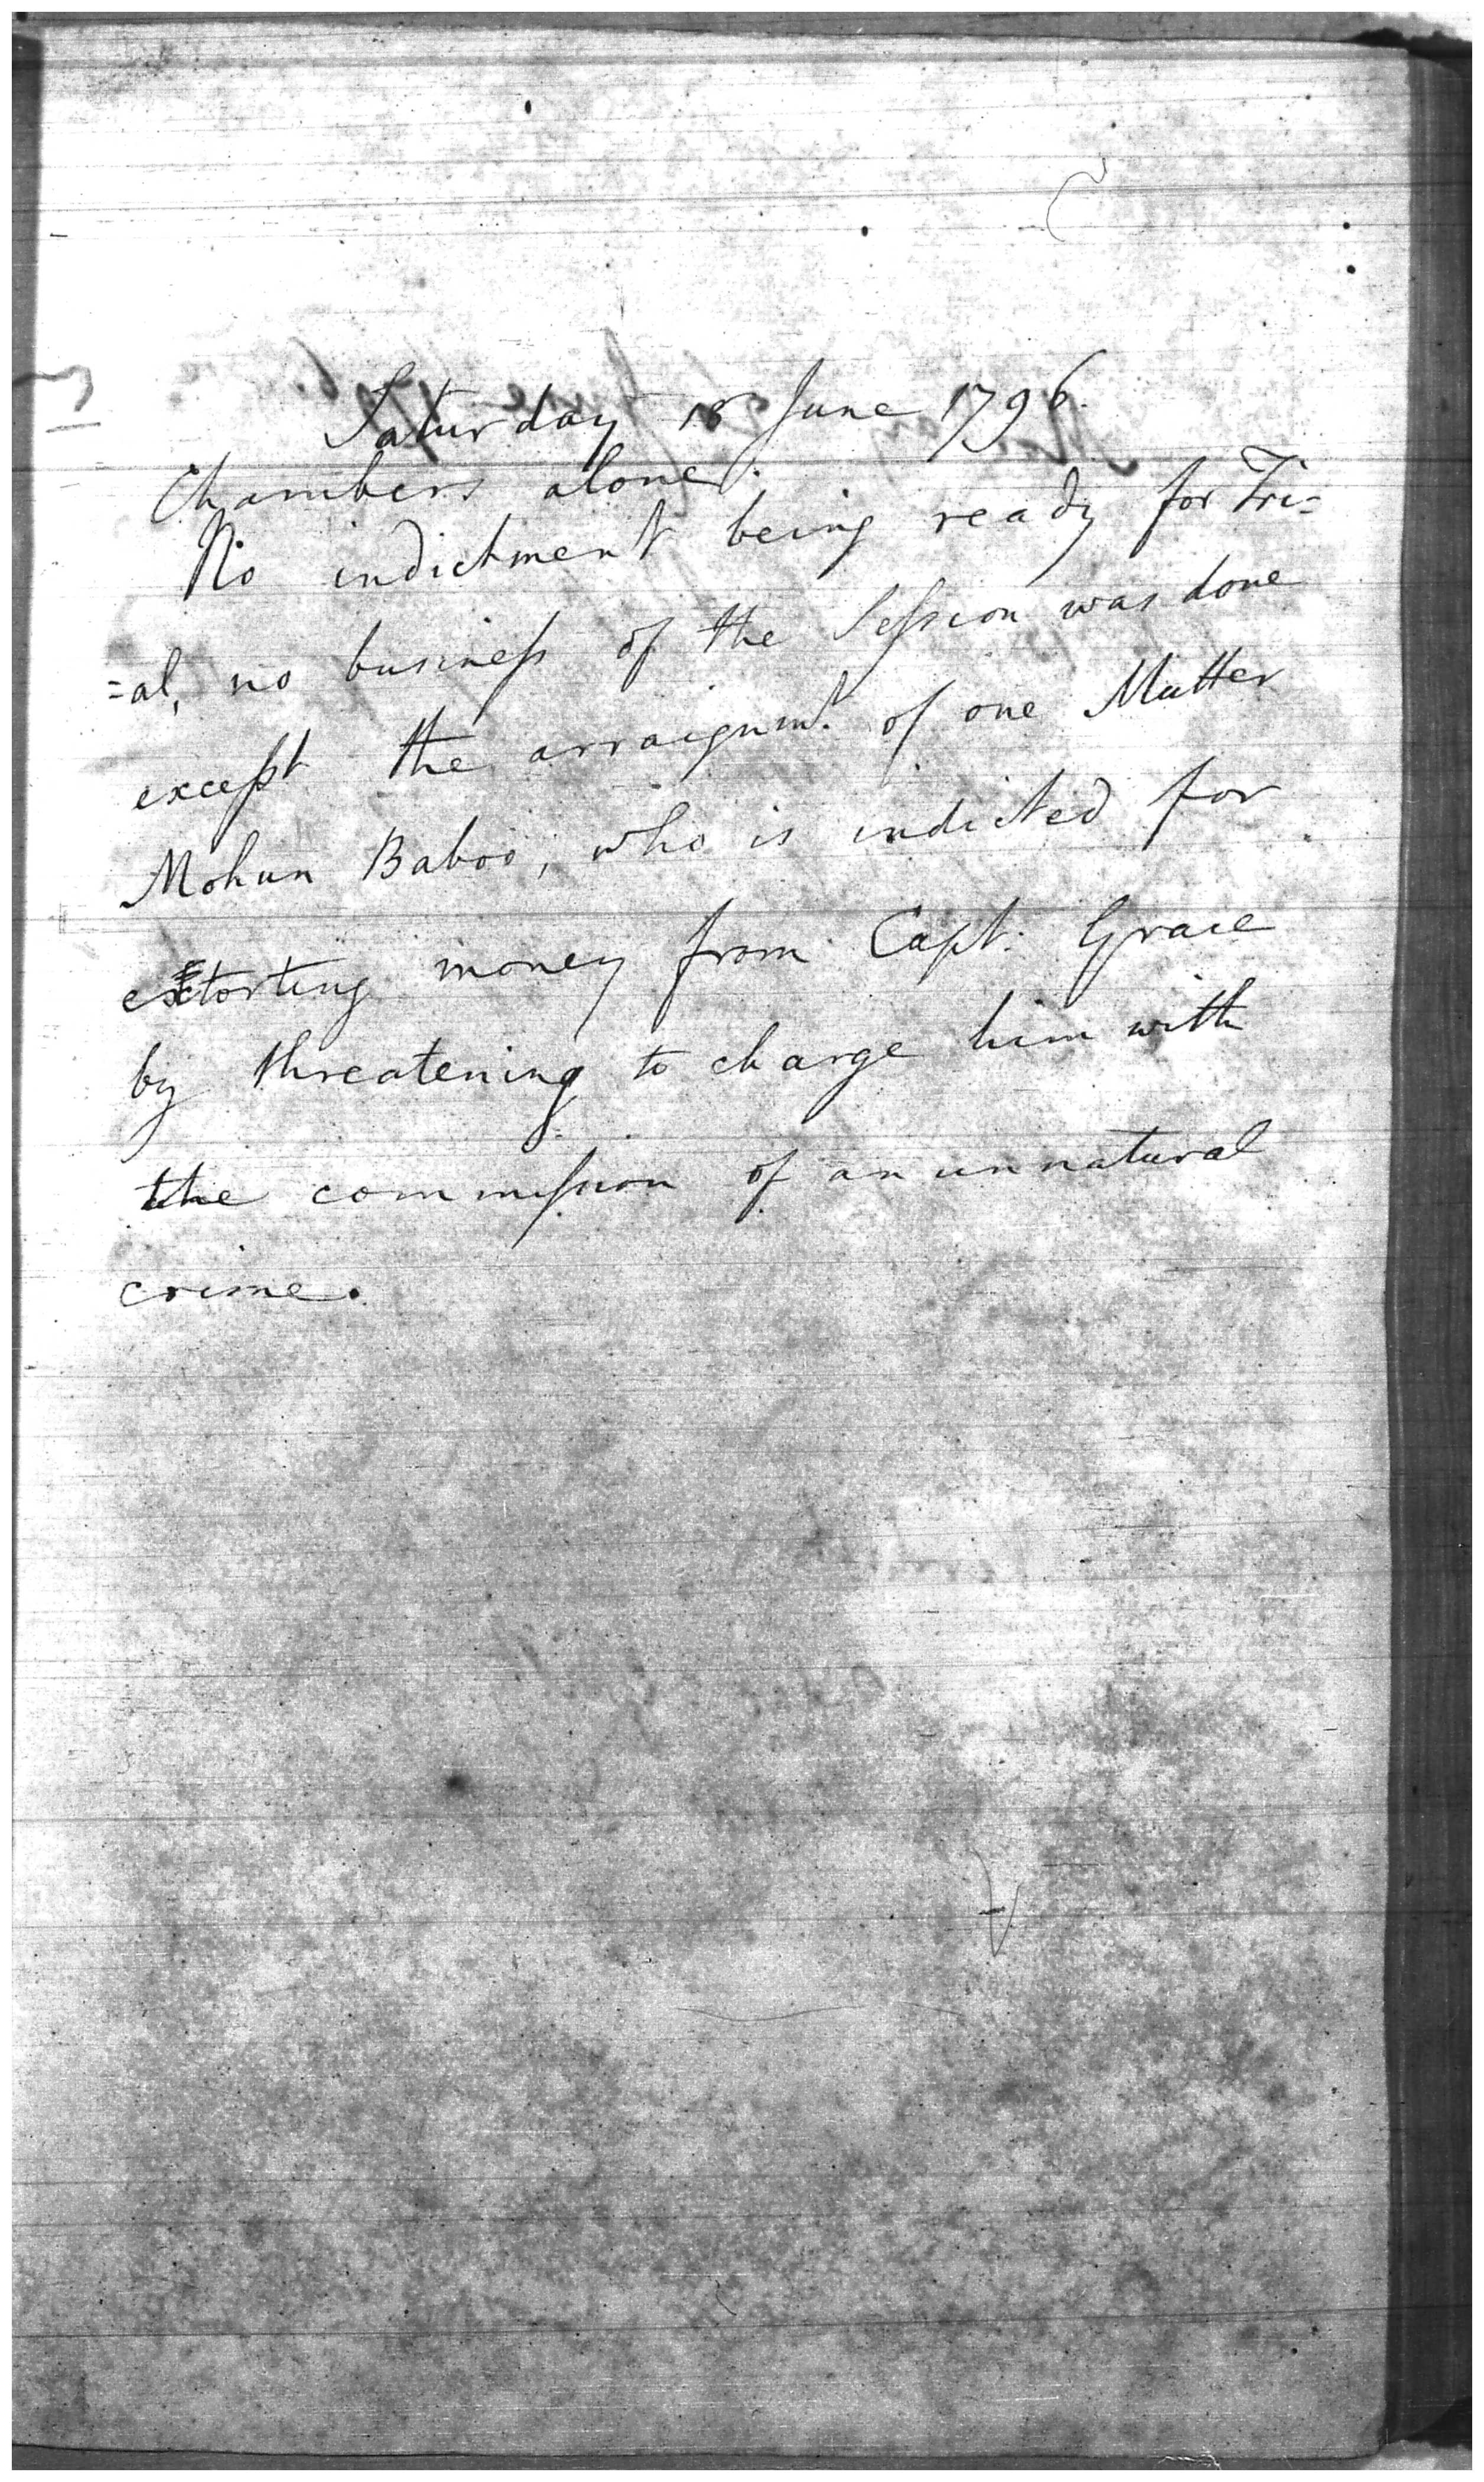 Saturday 18 June 1796.
Chambers alone.
No indictment being ready for Tri=
=al, no businefs of the Sefsion was done
except the arraignmt. of one Mutter
Mohun Baboo, who is indicted for
extorting money from Capt: Grace
by threatening to charge him with
the commifsion of an unnatural
crime.